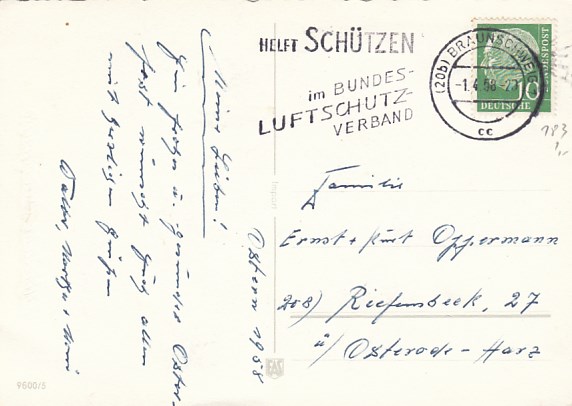 HELFT SCHÜTZEN
im BUNDES-
LUFTSCHUTZ-
VERBAND
(20b) BRAUNSCHWEIG
-1.4.58-
cc
10
DEUTSCHE BUNDESPOST
Meine Lieben!
Ein frohes u. gesundes Oster-
fest wünscht Euch allen
mit herzlichen Grüßen
Ostern 1958
Familie
Ernst + Kurt Oppermann
208) Riefensbeek, 27
ü/ Osterode-Harz
Import
9600/5